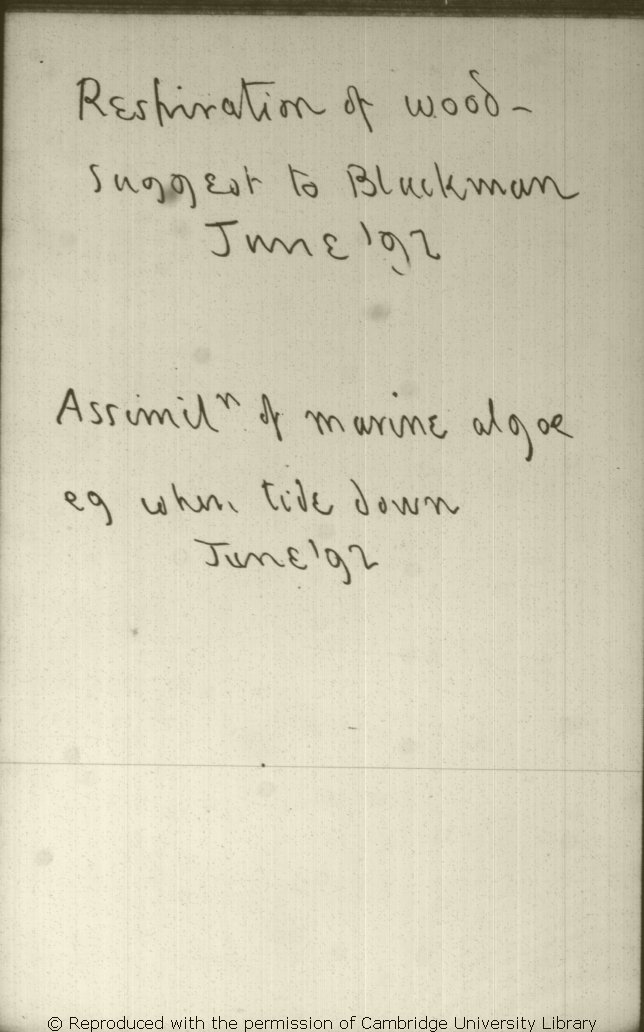 Respiration of wood –
suggest to Blackman
June '92
Assimilⁿ of marine algae
eg when tide down
June '92
© Reproduced with the permission of Cambridge University Library